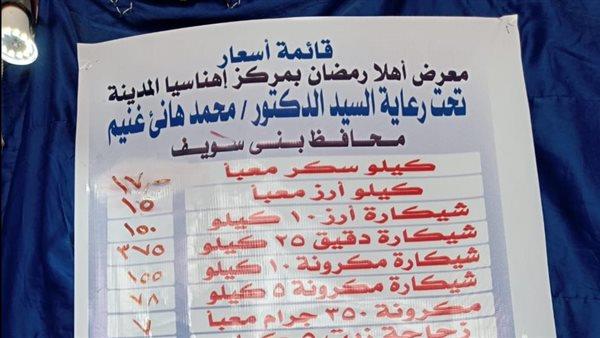 قائمة أسعار
معرض أهلا رمضان بمركز إهناسيا المدينة
تحت رعاية السيد الدكتور / محمد هانئ غنيم
محافظ بنى سويف
كيلو سكر معبأ
كيلو أرز معبأ ١٥
شيكارة أرز ١٠ كيلو ١٥٠
شيكارة دقيق ٢٥ كيلو ٣٧٥
شيكارة مكرونة ١٠ كيلو ١٥٥
شيكارة مكرونة ٥ كيلو ٧٨
مكرونة ٣٥٠ جرام معبأ ٧
زجاجة زيت